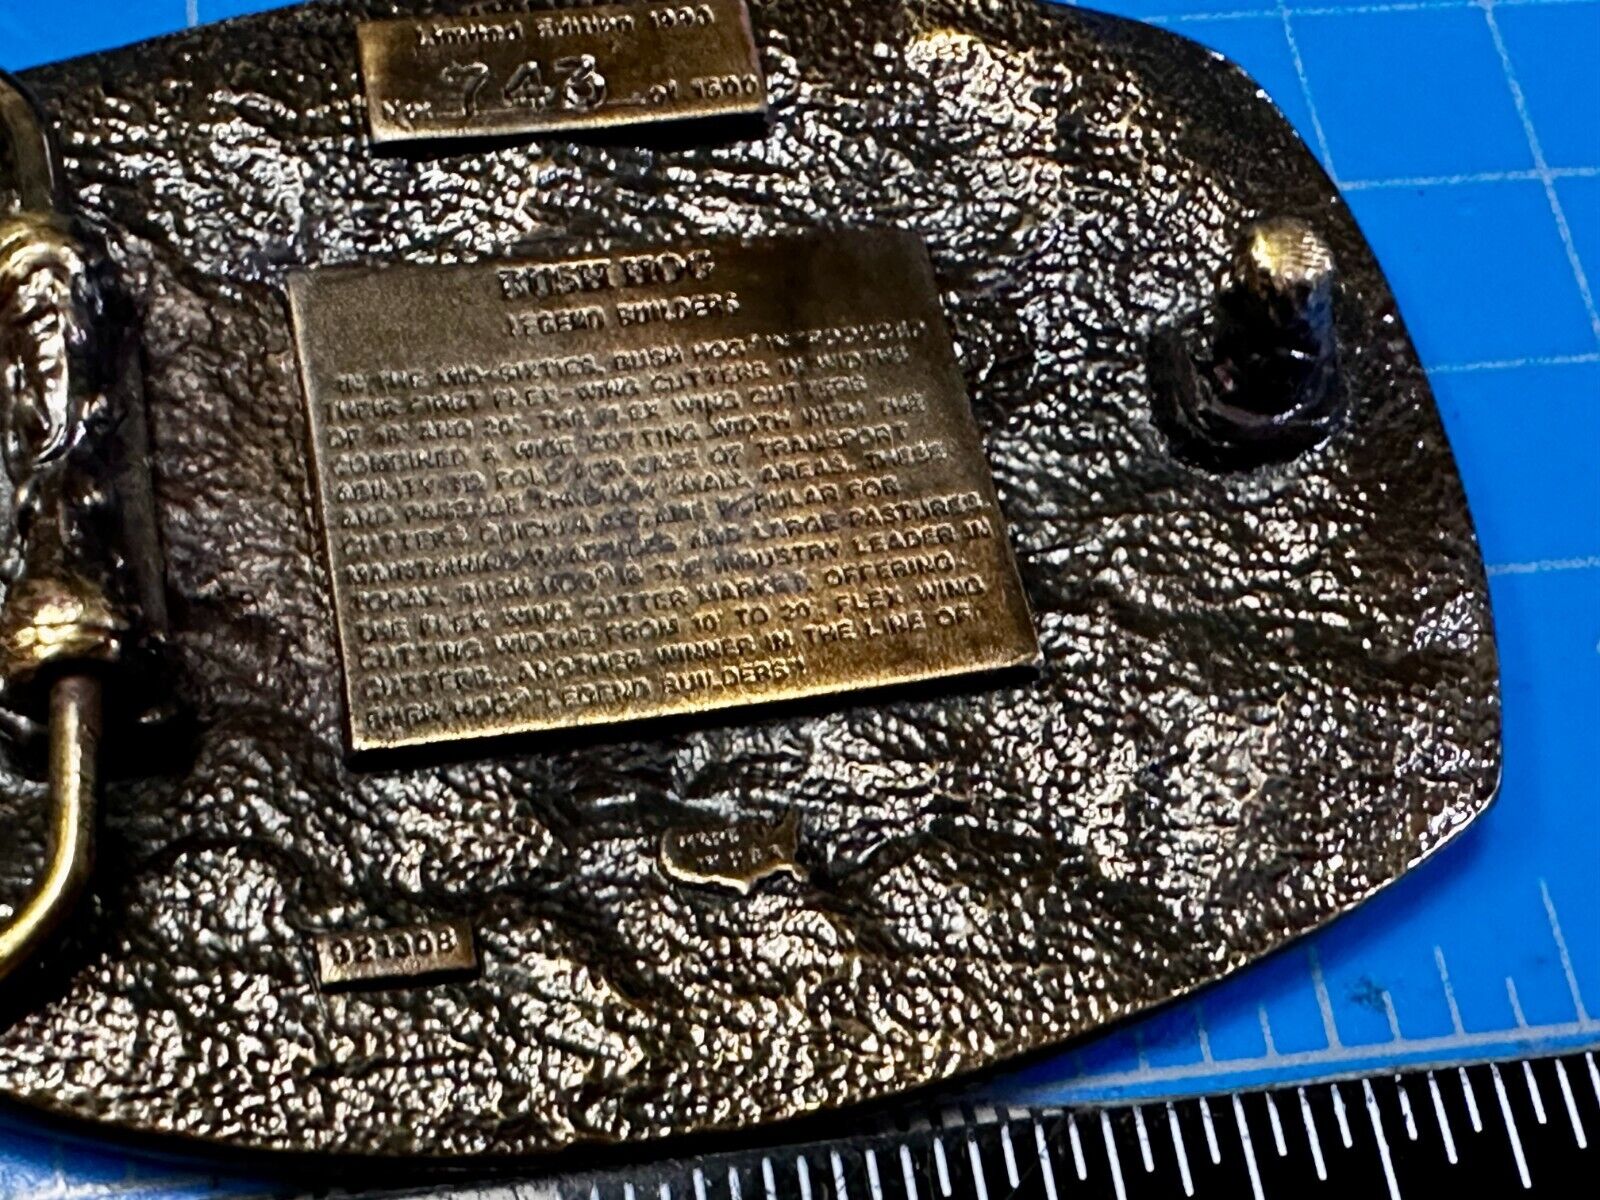 Limited Edition
No. 743 of 1500
BUSH HOG
LEGEND BUILDERS
IN THE MID-SIXTIES, BUSH HOG® INTRODUCED
THEIR FIRST FLEX-WING CUTTERS IN WIDTHS
OF AND 20'. THE FLEX WING CUTTERS
COMBINED A WIDE CUTTING WIDTH WITH THE
ABILITY TO FOLD FOR EASE OF TRANSPORT
AND PASSAGE THROUGH SMALL AREAS. THESE
CUTTERS QUICKLY BECAME POPULAR FOR
MAINTAINING AND LARGE PASTURES.
TODAY, BUSH HOG® IS THE INDUSTRY LEADER IN
THE FLEX WING CUTTER MARKET, OFFERING
CUTTING WIDTHS FROM 10' TO 20'. FLEX WING
CUTTERS...ANOTHER WINNER IN THE LINE OF
BUSH HOG "LEGEND BUILDERS"!
921308